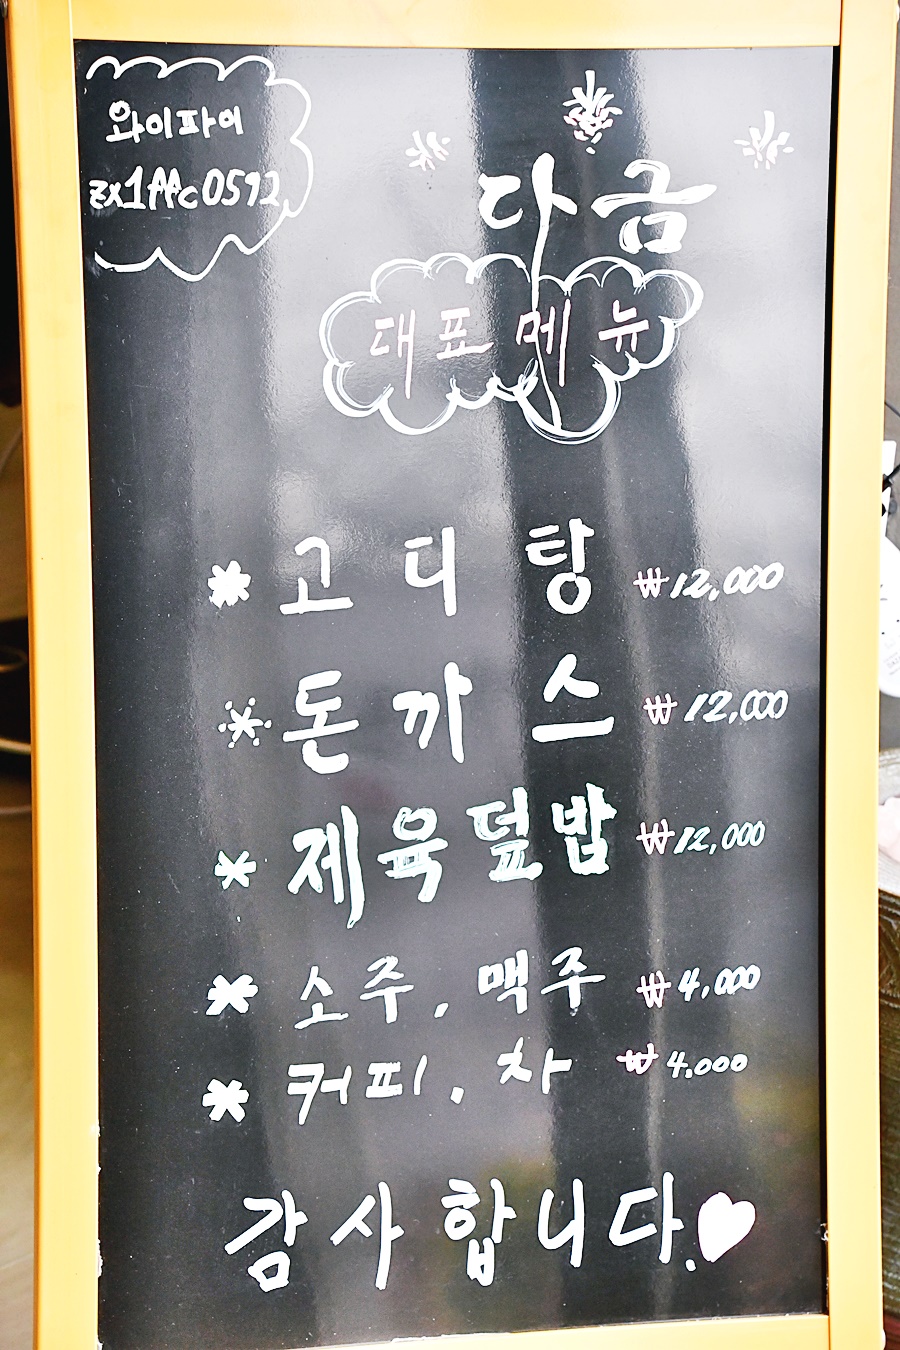 와이파이
zx1AAc0592
다금
대표 메뉴
* 고디탕 ₩12,000
* 돈까스 ₩12,000
* 제육덮밥 ₩12,000
* 소주, 맥주 ₩4,000
* 커피, 차 ₩4,000
감사합니다.♥